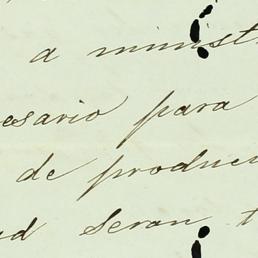 a minist
esario para
de produc
ad seran t